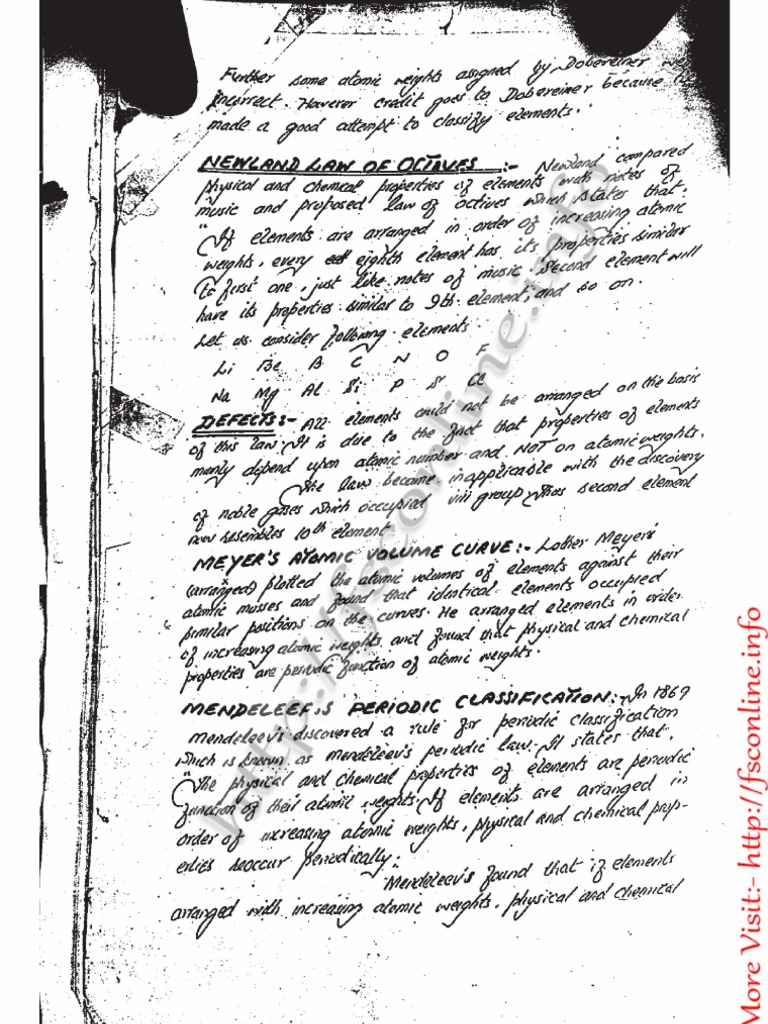 Further some atomic weights assigned by Dobereiner we
incorrect. However credit goes to Dobereiner because he
made a good attempt to classify elements.
NEWLAND LAW OF OCTAVES :- Newland compared
physical and chemical properties of elements with notes of
music and proposed law of octives which states that.
"If elements are arranged in order of increasing atomic
weights, every eighth element has its properties similar
to first one, just like notes of music. Second element will
have its properties similar to 9th element, and so on.
Let us consider following elements.
Li Be B C N O F
Na Mg Al Si P S Cl
DEFECTS:- All elements could not be arranged on the basis
of this law. It is due to the fact that properties of elements
mainly depend upon atomic number and NOT on atomic weights.
The law became inapplicable with the discovery
of noble gases which occupied viii group. Thus second element
now resembles 10th element.
MEYER'S ATOMIC VOLUME CURVE:- Lother Meyer's
(arranged) plotted the atomic volumes of elements against their
atomic masses and found that identical elements occupied
similar positions on the curves. He arranged elements in order
of increasing atomic weights and found that physical and chemical
properties are periodic function of atomic weights.
MENDELEEF,S PERIODIC CLASSIFICATION:- In 1869
Mendeleev's discovered a rule for periodic classification
which is known as Mendeleev's periodic law. It states that.
"The physical and chemical properties of elements are periodic
function of their atomic weights. If elements are arranged in
order of increasing atomic weights, physical and chemical prop-
erties reoccur periodically."
Mendeleev's found that if elements
arranged with increasing atomic weights, physical and chemical
http://fsconline.info
More Visit:- http://fsconline.info